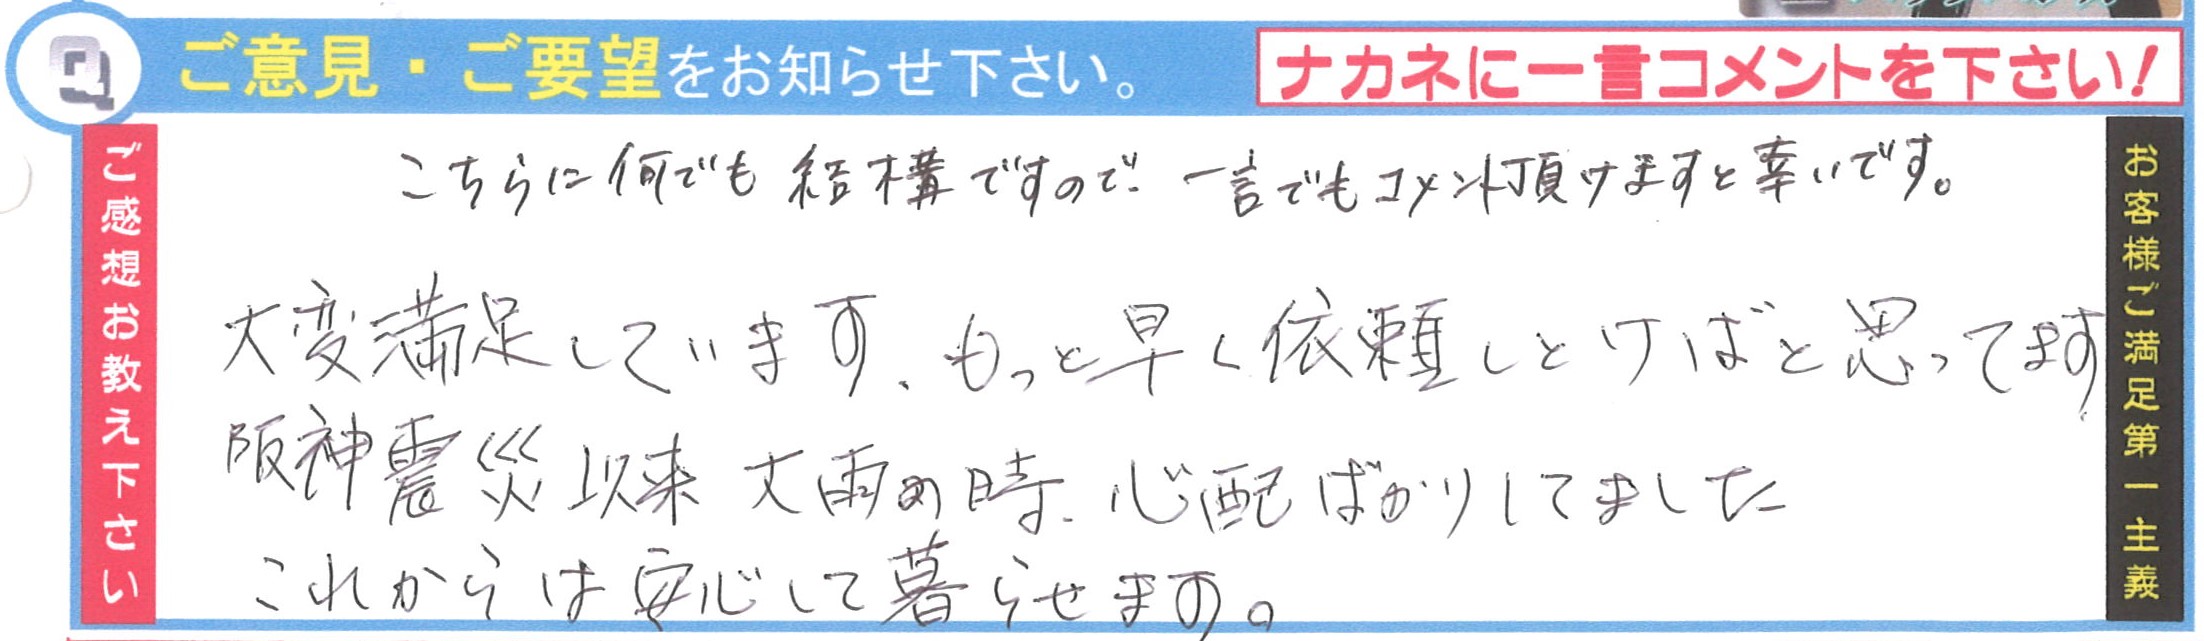 Q ご意見・ご要望をお知らせ下さい。 ナカネに一言コメントを下さい!
ご感想お教え下さい
こちらに何でも結構ですので一言でもコメント頂けますと幸いです。
大変満足しています、もっと早く依頼しとけばと思ってます
阪神震災以来 大雨の時、心配ばかりしてました
これからは安心して暮らせます。
お客様ご満足第一主義